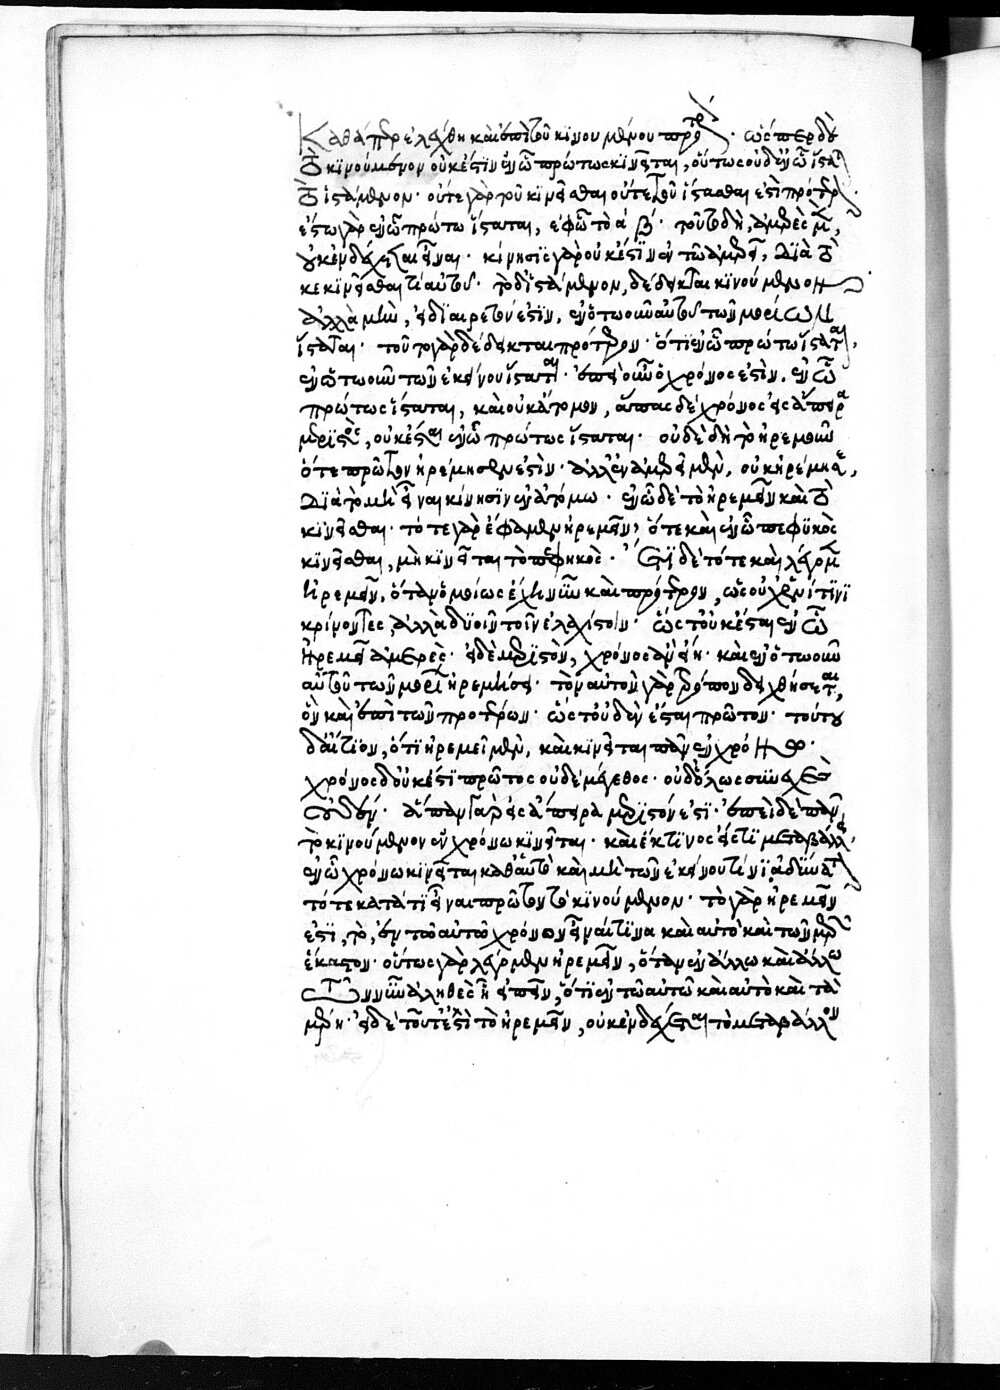 Καθάπερ ἐλέχθη καὶ ἐπὶ τοῦ κινουμένου πρότερον. ὥσπερ δὲ
τὸ κινούμενον οὐκ ἔστιν ἐν ᾧ πρώτως κινεῖται, οὕτως οὐδ' ἐν ᾧ ἵσταται
τὸ ἱστάμενον· οὔτε γὰρ τοῦ κινεῖσθαι οὔτε τοῦ ἵστασθαι ἐστὶ πρότερον.
ἔστω γὰρ ἐν ᾧ πρώτω ἵσταται, ἐφ' ᾧ τὸ α β. τοῦτο δὴ, ἀμερὲς μὲν,
οὐκ ἐνδέχεται εἶναι· κίνησις γὰρ οὐκ ἔστιν ἐν τῷ ἀμερεῖ, διὰ τὸ
κεκινεῖσθαι τί αὐτοῦ. τὸ δ' ἱστάμενον, δέδεικται κινούμενον·
ἀλλὰ μὴν, εἰ διαιρετόν ἐστιν, ἐν ὁτωοῦν αὐτοῦ τῶν μερῶν
ἵσταται. τοῦτο γὰρ δέδεικται πρότερον· ὅτι ἐν ᾧ πρώτω ἵσταται,
ἐν ὁτωοῦν τῶν ἐκείνου ἵσταται. ἐπεὶ οὖν ὁ χρόνος ἐστὶν, ἐν ᾧ
πρώτως ἵσταται, καὶ οὐκ ἄτομον, ἅπας δὲ χρόνος εἰς ἄπειρα
μεριστὸς, οὐκ ἔσται ἐν ᾧ πρώτως ἵσταται. οὐδὲ δὴ τὸ ἠρεμοῦν
ὅτε πρῶτον ἠρέμησεν ἔστιν· ἀλλ' ἐν ἀμερεῖ μὲν, οὐκ ἠρέμησε,
διὰ τὸ μὴ εἶναι κίνησιν ἐν ἀτόμω· ἐν ᾧ δὲ τὸ ἠρεμεῖν καὶ τὸ
κινεῖσθαι· τότε γὰρ ἔφαμεν ἠρεμεῖν, ὅτε καὶ ἐν ᾧ πεφυκὸς
κινεῖσθαι, μὴ κινεῖται τὸ πεφυκός. ἔτι δὲ τότε καὶ λέγομεν
ἠρεμεῖν, ὅταν ὁμοίως ἔχη νῦν καὶ πρότερον, ὡς οὐχ ἑνί τινι
κρίνοντες ἀλλὰ δυοῖν τοῖν ἐλαχίστοιν· ὥστ' οὐκ ἔσται ἐν ᾧ
ἠρεμεῖ ἀμερές· εἰ δὲ μεριστὸν, χρόνος ἂν εἴη· καὶ ἐν ὁτωοῦν
αὐτοῦ τῶν μερῶν ἠρεμήσει. τὸν αὐτὸν γὰρ τρόπον δειχθήσεται,
ὃν καὶ ἐπὶ τῶν προτέρων· ὥστ' οὐδὲν ἔσται πρῶτον. τούτου
δ' αἴτιον, ὅτι ἠρεμεῖ μὲν, καὶ κινεῖται πᾶν ἐν χρόνῳ·
χρόνος δ' οὐκ ἔστι πρῶτος οὐδὲ μέγεθος· οὐδ' ὅλως συνεχὲς
οὐδέν. ἅπαν γὰρ εἰς ἄπειρα μεριστόν ἐστι. ἐπεὶ δὲ πᾶν
τὸ κινούμενον ἐν χρόνω κινεῖται· καὶ ἔκ τινος εἴς τι μεταβάλλει,
ἐν ᾧ χρόνω κινεῖται καθ' αὑτὸ καὶ μὴ τῶν ἐκείνου τινὶ ἀδύνατον
τότε κατά τι εἶναι πρῶτον τὸ κινούμενον· τὸ γὰρ ἠρεμεῖν
ἐστι, τὸ, ἐν τῷ αὐτῷ χρόνον εἶναί τινα καὶ αὐτὸ καὶ τῶν μερῶν
ἕκαστον· οὕτως γὰρ λέγομεν ἠρεμεῖν, ὅταν ἐν ἄλλω καὶ ἄλλω
τῶν νῦν ἀληθὲς ᾖ εἰπεῖν, ὅτι ἐν τῷ αὐτῷ καὶ αὐτὸ καὶ τὰ
μέρη. εἰ δὲ τοῦτ' ἔστι τὸ ἠρεμεῖν, οὐκ ἐνδέχεται τὸ μεταβάλλον